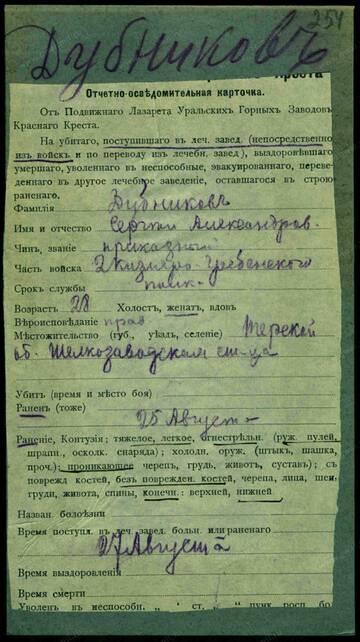 254
Дубниковъ
Креста
Отчетно-освѣдомительная карточка.
Отъ Подвижнаго Лазарета Уральскихъ Горныхъ Заводовъ
Краснаго Креста.
На убитаго, поступившаго въ леч. завед. (непосредственно
изъ войскъ и по переводу изъ лечебн. завед.), выздоровѣвшаго
умершаго, уволеннаго въ неспособные, эвакуированнаго, переве-
деннаго въ другое лечебное заведеніе, оставшагося въ строю
раненаго.
Фамилія Дубниковъ
Имя и отчество Сергѣй Александров.
Чинъ, званіе приказный
Часть войска 2 Кизляро-Гребенского
Срокъ службы полк.
Возрастъ 28 Холостъ, женатъ, вдовъ
Вѣроисповѣданіе прав
Мѣстожительство (губ., уѣздъ, селеніе) Терской
об. Шелкозаводская ст-ца
Убитъ (время и мѣсто боя)
Раненъ (тоже)
25 Август
Раненіе, Контузія; тяжелое, легкое, огнестрѣльн. (руж. пулей,
шрапн., осколк. снаряда); холодн. оруж. (штыкъ, шашка,
проч.); проникающее черепъ, грудь, животъ, суставъ); съ
поврежд костей, безъ поврежден. костей, черепа, лица, шеи
груди, живота, спины, конечн.: верхней, нижней
Назван. болѣзни
Время поступл. въ леч. завед. больн. или раненаго
27 Августа
Время выздоровленія
Время смерти
Уволенъ въ неспособн. „ ст.